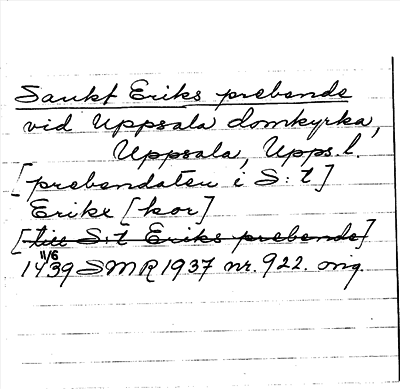 Sankt Eriks prebende
vid Uppsala domkyrka,
Uppsala, Upps. l.
[prebendaten i S:t]
Erike [kor]
[till S:t Eriks prebende]
11/6
1439 SMR 1937 nr. 922. orig.